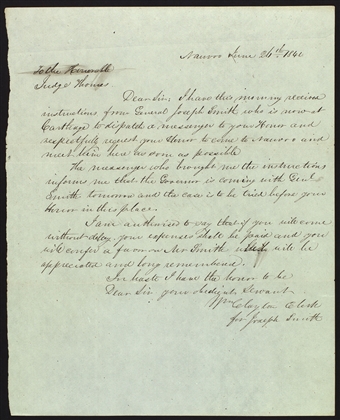 Nauvoo June 26th 1844
To the Honorable
Judge Thomas
Dear Sir, I have this morning received
instructions from General Joseph Smith who is now at
Carthage to dispatch a messenger to your Honor and
respectfully request your Honor to come to Nauvoo and
meet him here as soon as possible
The messenger who brought me the instructions
informs me that the Governor is coming with Genl.
Smith tomorrow and the case is to be tried before your
Honor in this place.
I am authorized to say that if you will come
without delay your expenses shall be paid and you
will confer a favor on Mr Smith which will be
appreciated and long remembered.
In haste I have the honor to be
Dear Sir your obedient Servant
Wm Clayton Clerk
for Joseph Smith